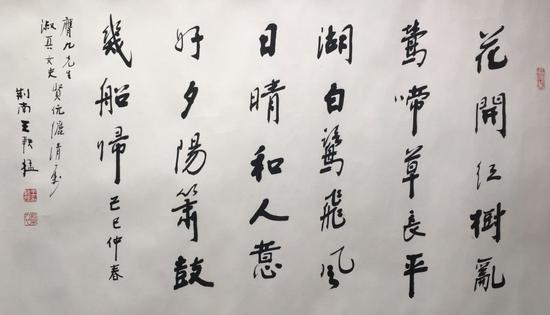 花開紅樹亂
鶯啼草長平
湖白鷺飛風
日晴和人意
好夕陽簫鼓
幾船歸 己巳仲春
膺九先生
淑真女史 賢伉儷清
荊南王軼猛